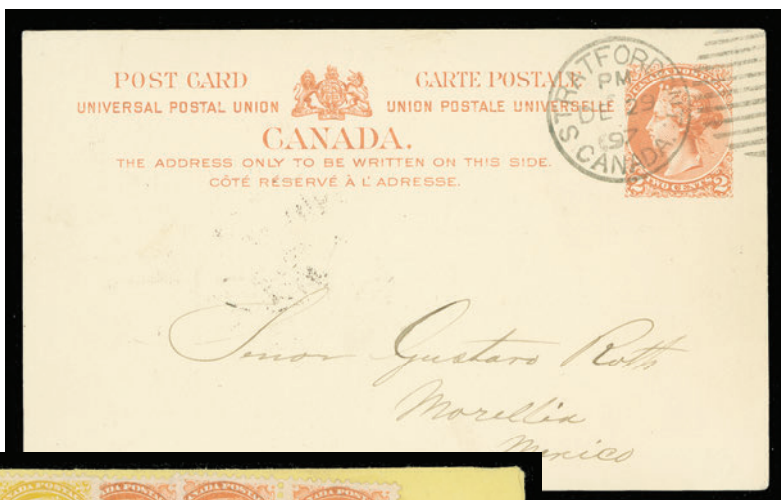 POST CARD CARTE POSTALE
UNIVERSAL POSTAL UNION UNION POSTALE UNIVERSELLE
CANADA.
THE ADDRESS ONLY TO BE WRITTEN ON THIS SIDE.
CÔTÉ RÉSERVÉ À L'ADRESSE.
STRATFORD
PM
DE 29
97
CANADA
2 TWO CENTS 2
Senor Gustavo Roth
Morellia
Mexico
CANADA POSTAGE